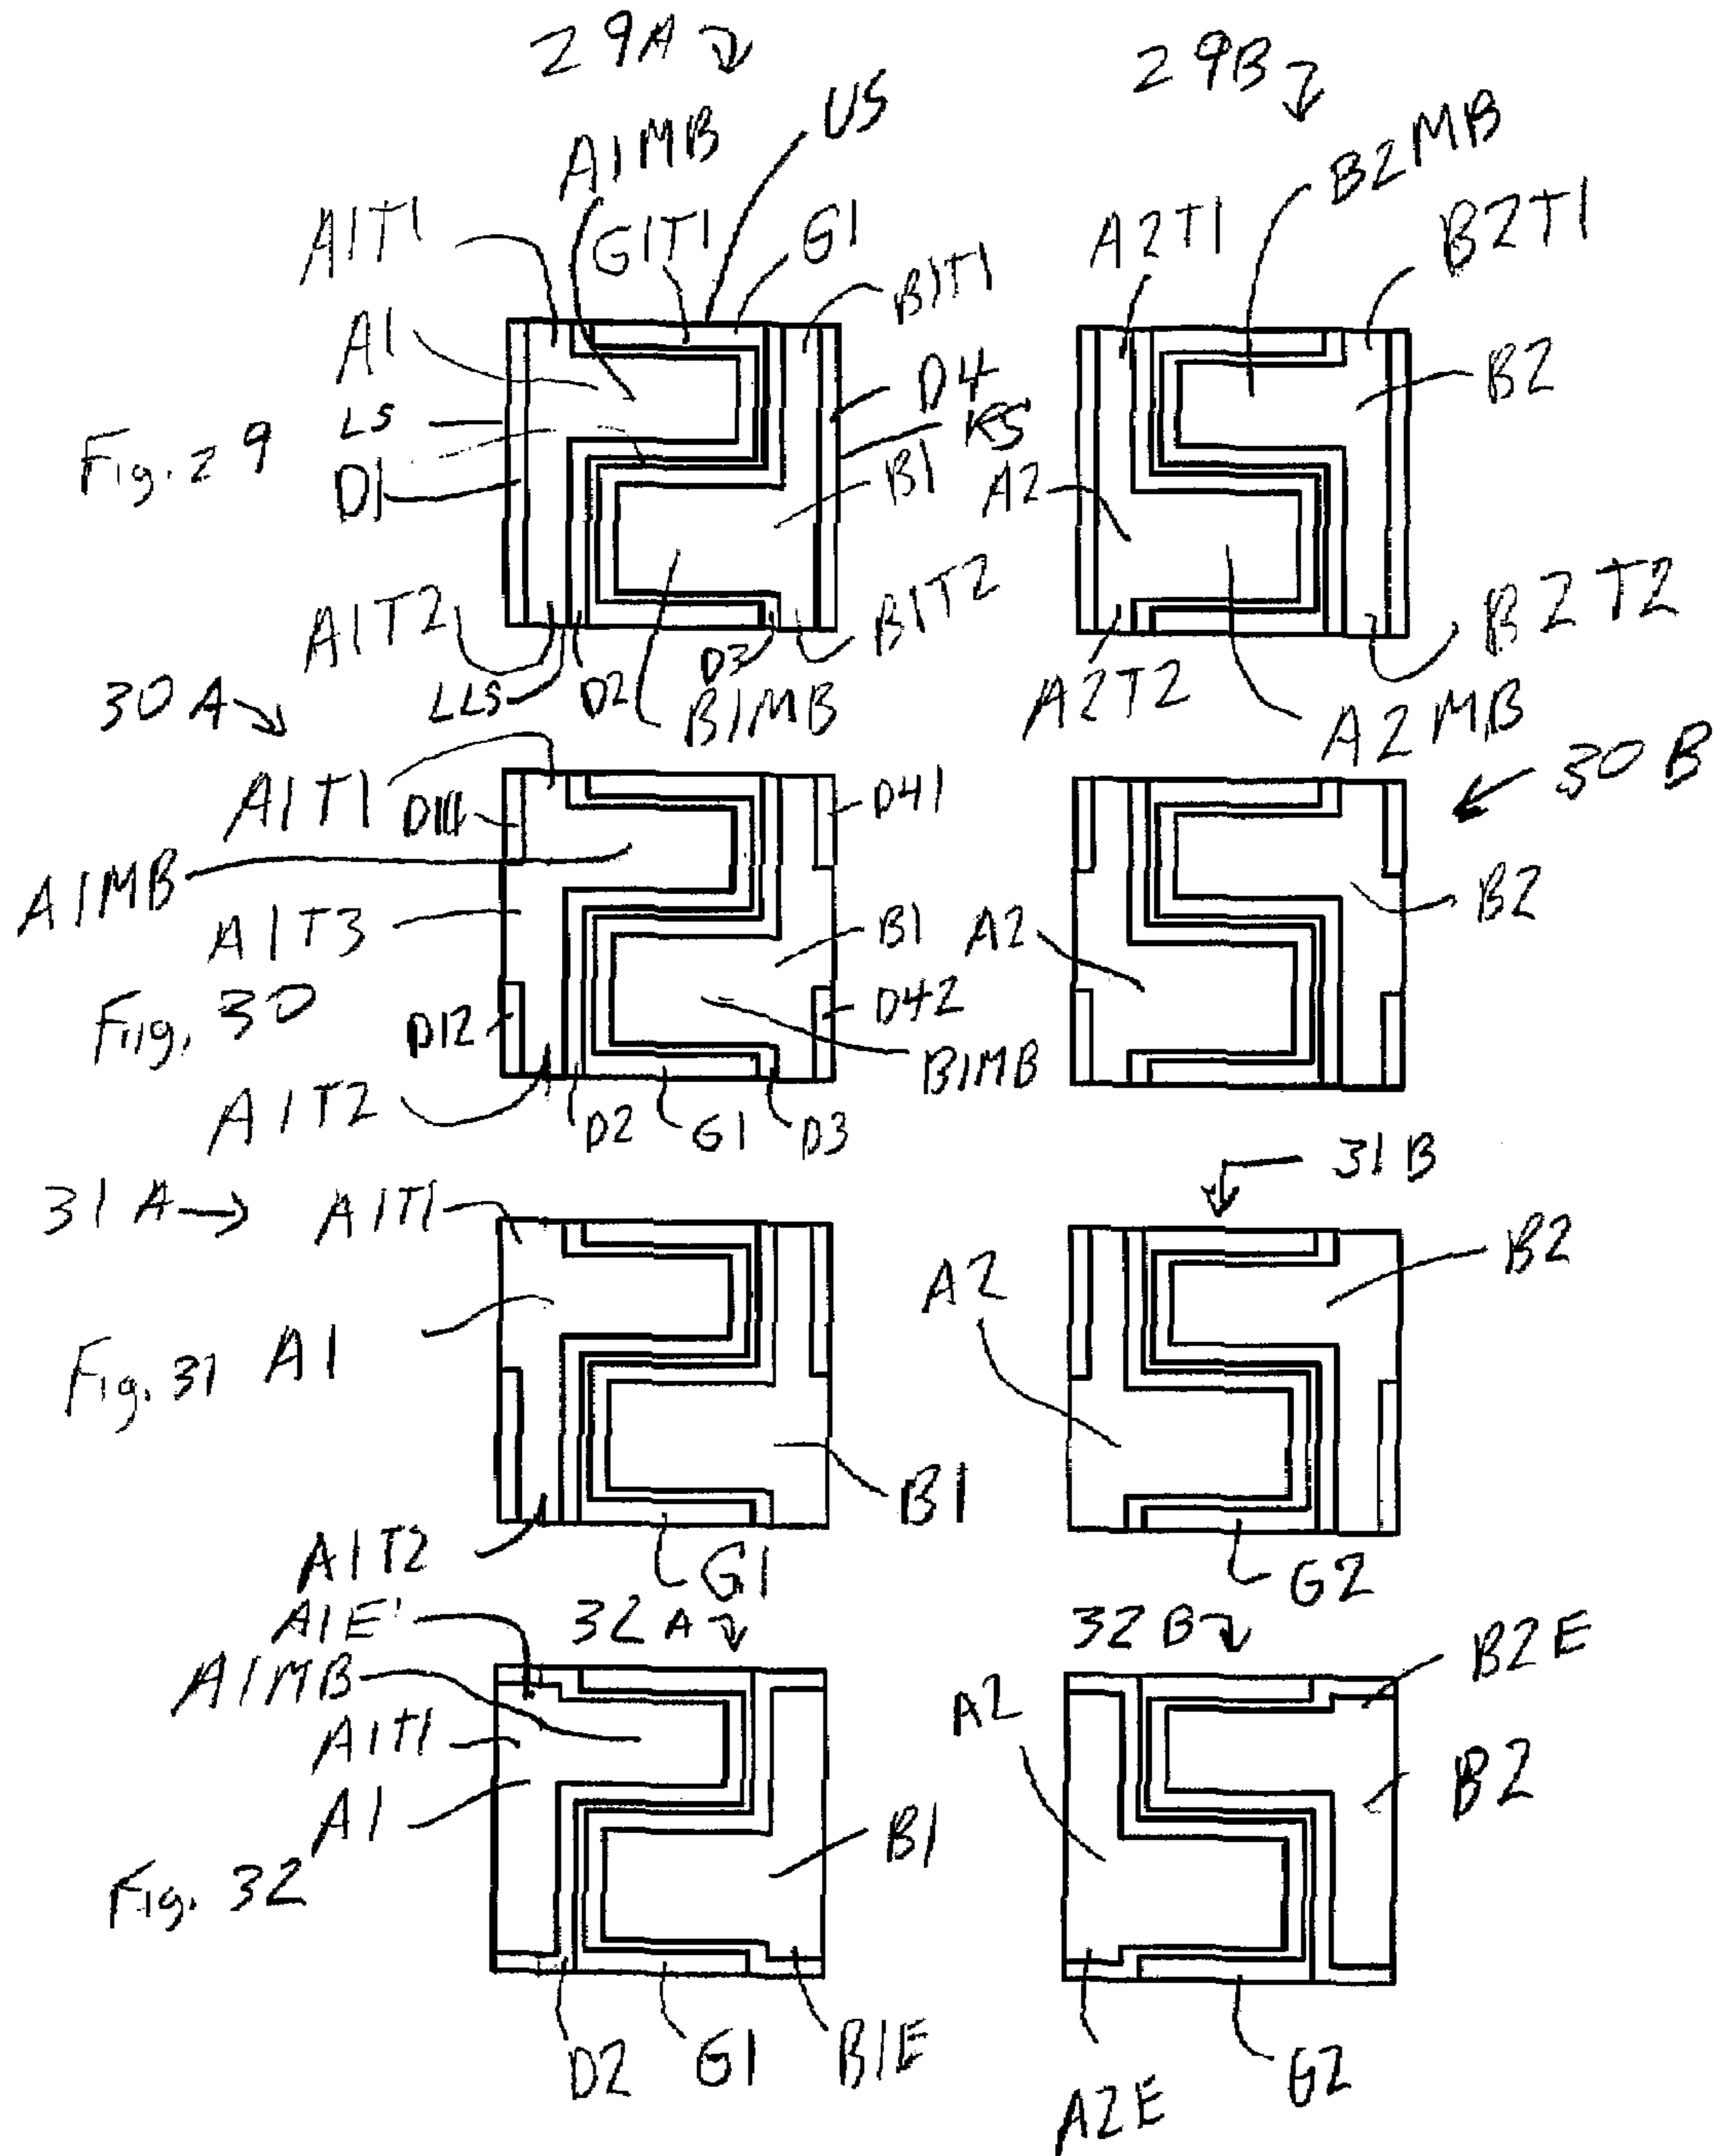 29A
29B
US
A1MB
B2MB
A1T1
G1T1
G1
A2T1
B2T1
B1T1
A1
D4
B2
LS
RS
Fig. 29
D1
B1
A2
A1T2
LLS
D2
D3
B1T2
B1MB
A2T2
A2MB
B2T2
30A
30B
A1T1
D111
D41
A1MB
A1T3
B1
A2
B2
Fig. 30
D12
D42
B1MB
A1T2
D2
G1
D3
31A
A1T1
31B
A2
B2
Fig. 31
A1
B1
A1T2
G1
G2
A1E
32A
32B
B2E
A1MB
A2
A1T1
A1
B2
B1
Fig. 32
D2
G1
B1E
A2E
G2